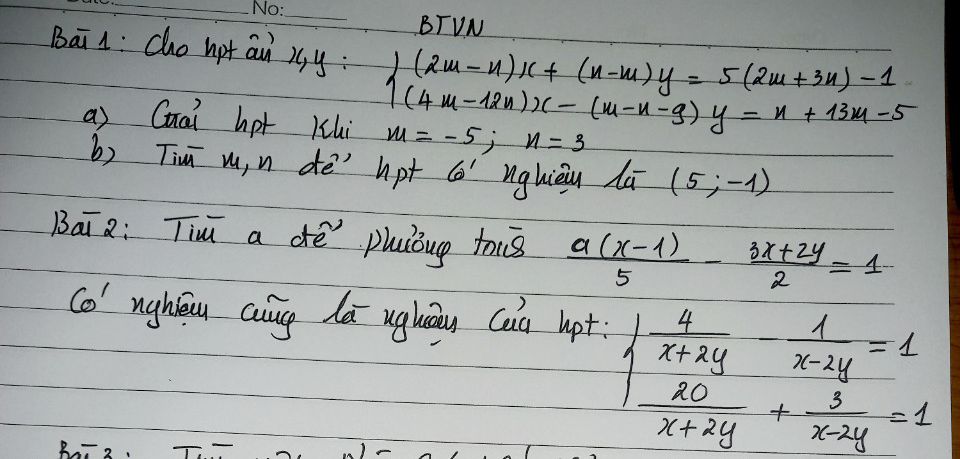 No:
BTVN
Bài 1: Cho hpt ẩn x,y: { (2m-n)x + (n-m)y = 5(2m+3n)-1
(4m-12n)x - (m-n-9)y = n + 13m-5
a) Giải hpt khi m = -5; n = 3
b) Tìm m,n để hpt có nghiệm là (5;-1)
Bài 2: Tìm a để phương trình a(x-1)/5 - 3x+2y/2 = 1
Có nghiệm cũng là nghiệm của hpt: { 4/x+2y - 1/x-2y = 1
20/x+2y + 3/x-2y = 1
Bài 3: Tìm